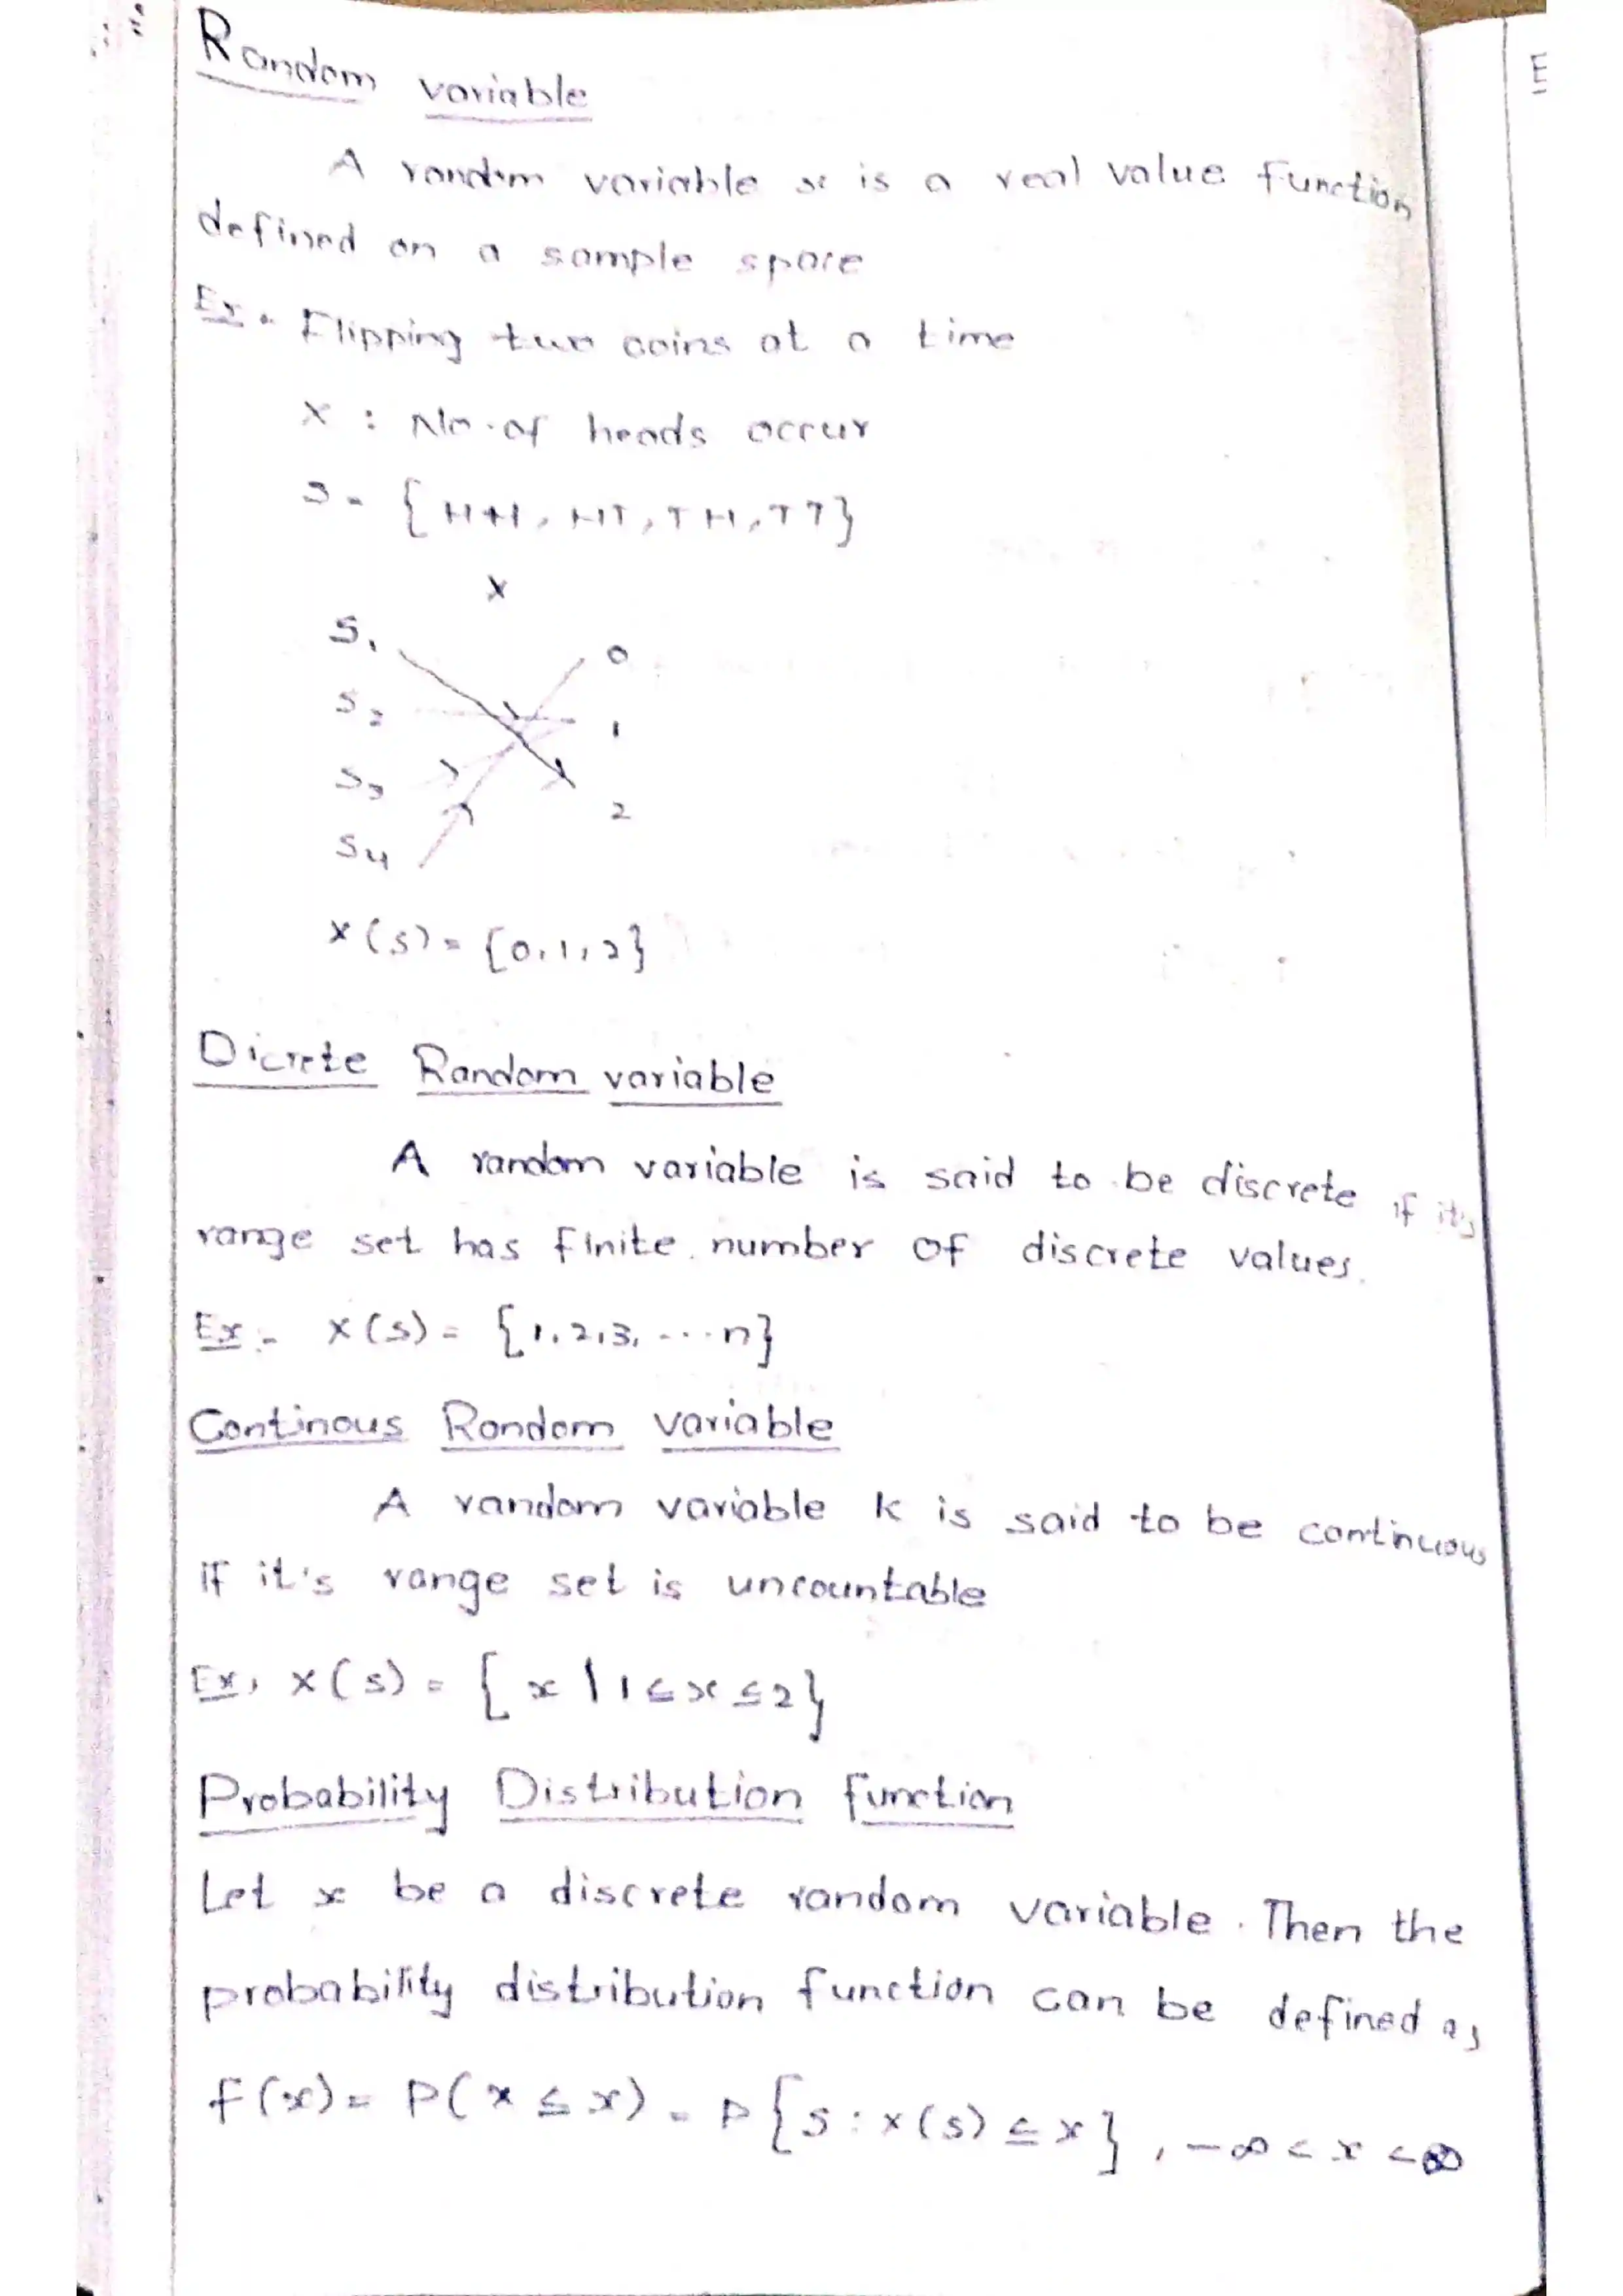 Random variable
A random variable x is a real value function
defined on a sample space
Ex. Flipping two coins at a time
X : No. of heads occur
S = { HH, HT, TH, TT}
X
S1 0
S2 1
S3
2
S4
X(S) = {0,1,2}
Dicrete Random variable
A random variable is said to be discrete if its
range set has finite number of discrete values.
Ex:- X(S) = {1,2,3, ...n}
Continous Random variable
A random variable k is said to be continuous
if it's range set is uncountable
Ex, X(S) = { x | 1 ≤ x ≤ 2}
Probability Distribution function
Let x be a discrete random variable. Then the
probability distribution function can be defined as
F(x) = P(X ≤ x) = P{S : X(S) ≤ x}, -∞ < x < ∞
E